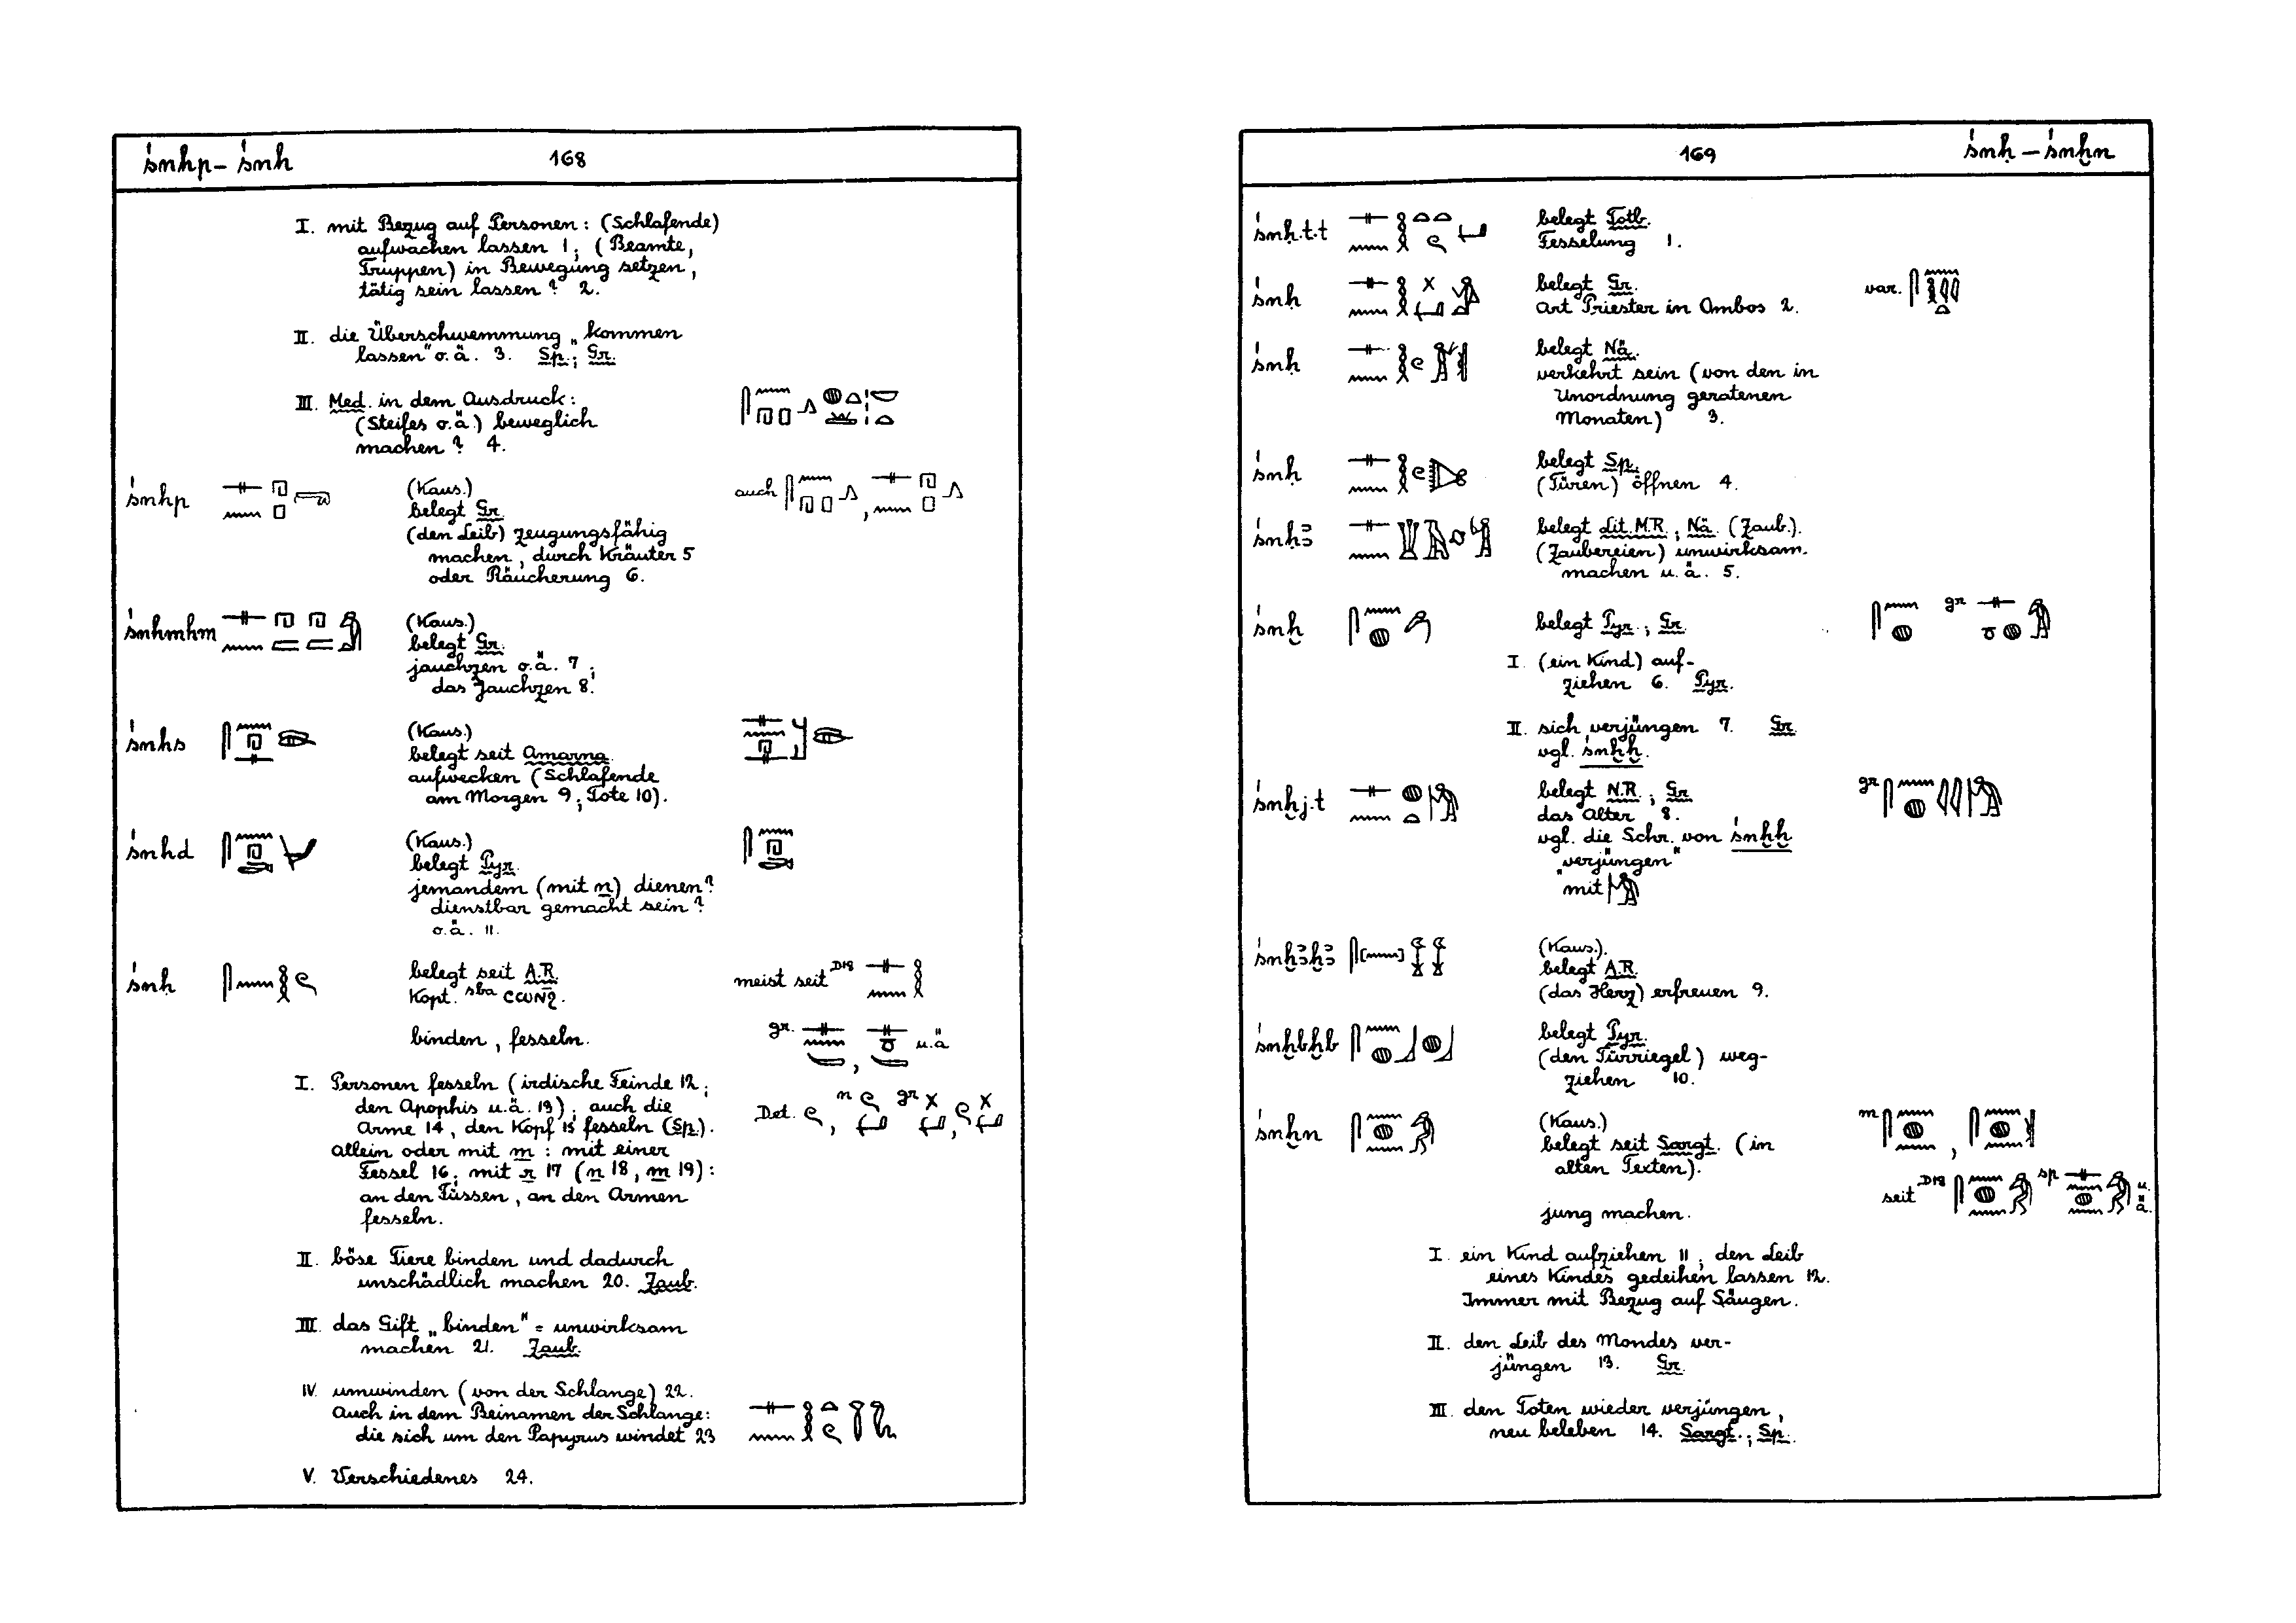 śnhp – śnḥ 168
I. mit Bezug auf Personen: (Schlafende)
aufwachen lassen 1; (Beamte,
Truppen) in Bewegung setzen,
tätig sein lassen? 2.
II. die Überschwemmung „kommen
lassen" o.ä. 3. Sp.; Gr.
III. Med. in dem Ausdruck:
(Steifes o.ä.) beweglich
machen? 4.
śnhp (Kaus.) auch
belegt Gr.
(den Leib) zeugungsfähig
machen, durch Kräuter 5
oder Räucherung 6.
śnhmhm (Kaus.)
belegt Gr.
jauchzen o.ä. 7;
das Jauchzen 8.
śnhs (Kaus.)
belegt seit Amarna.
aufwecken (Schlafende
am Morgen 9; Tote 10).
śnhd (Kaus.)
belegt Pyr.
jemandem (mit n) dienen?
dienstbar gemacht sein?
o.ä. 11.
śnḥ belegt seit A.R. meist seit D18
Kopt. sba ⲥⲱⲛϩ.
binden, fesseln. gr. u.ä
I. Personen fesseln (irdische Feinde 12;
den Apophis u.ä. 13); auch die
Arme 14, den Kopf 15 fesseln (Sp.). Det. n gr
Allein oder mit m: mit einer
Fessel 16; mit r 17 (n 18, m 19):
an den Füssen, an den Armen
fesseln.
II. böse Tiere binden und dadurch
unschädlich machen 20. Zaub.
III. das Gift „binden" = unwirksam
machen 21. Zaub.
IV. umwinden (von der Schlange) 22.
Auch in dem Beinamen der Schlange:
die sich um den Papyrus windet 23
V. Verschiedenes 24.
169 śnḥ – śnḫn
śnḥ.t.t belegt Totb.
Fesselung 1.
śnḥ belegt Gr. var.
Art Priester in Ombos 2.
śnḥ belegt Nä.
verkehrt sein (von den in
Unordnung geratenen
Monaten) 3.
śnḥ belegt Sp.
(Türen) öffnen 4.
śnḥꜣ belegt Lit. M.R.; Nä. (Zaub.).
(Zaubereien) unwirksam.
machen u.ä. 5.
śnḫ belegt Pyr.; Gr. gr
I. (ein Kind) auf-
ziehen 6. Pyr.
II. sich verjüngen 7. Gr.
vgl. śnḫḫ.
śnḫj.t belegt N.R.; Gr. gr
das Alter 8.
vgl. die Schr. von śnḫḫ
„verjüngen"
mit
śnḫꜣḫꜣ (Kaus.).
belegt A.R.
(das Herz) erfreuen 9.
śnḫbḫb belegt Pyr.
(den Türriegel) weg-
ziehen 10.
śnḫn (Kaus.) m
belegt seit Sargt. (in
alten Texten).
seit D18 sp u. ä.
jung machen.
I. ein Kind aufziehen 11; den Leib
eines Kindes gedeihen lassen 12.
Immer mit Bezug auf Säugen.
II. den Leib des Mondes ver-
jüngen 13. Gr.
III. den Toten wieder verjüngen,
neu beleben 14. Sargt.; Sp.